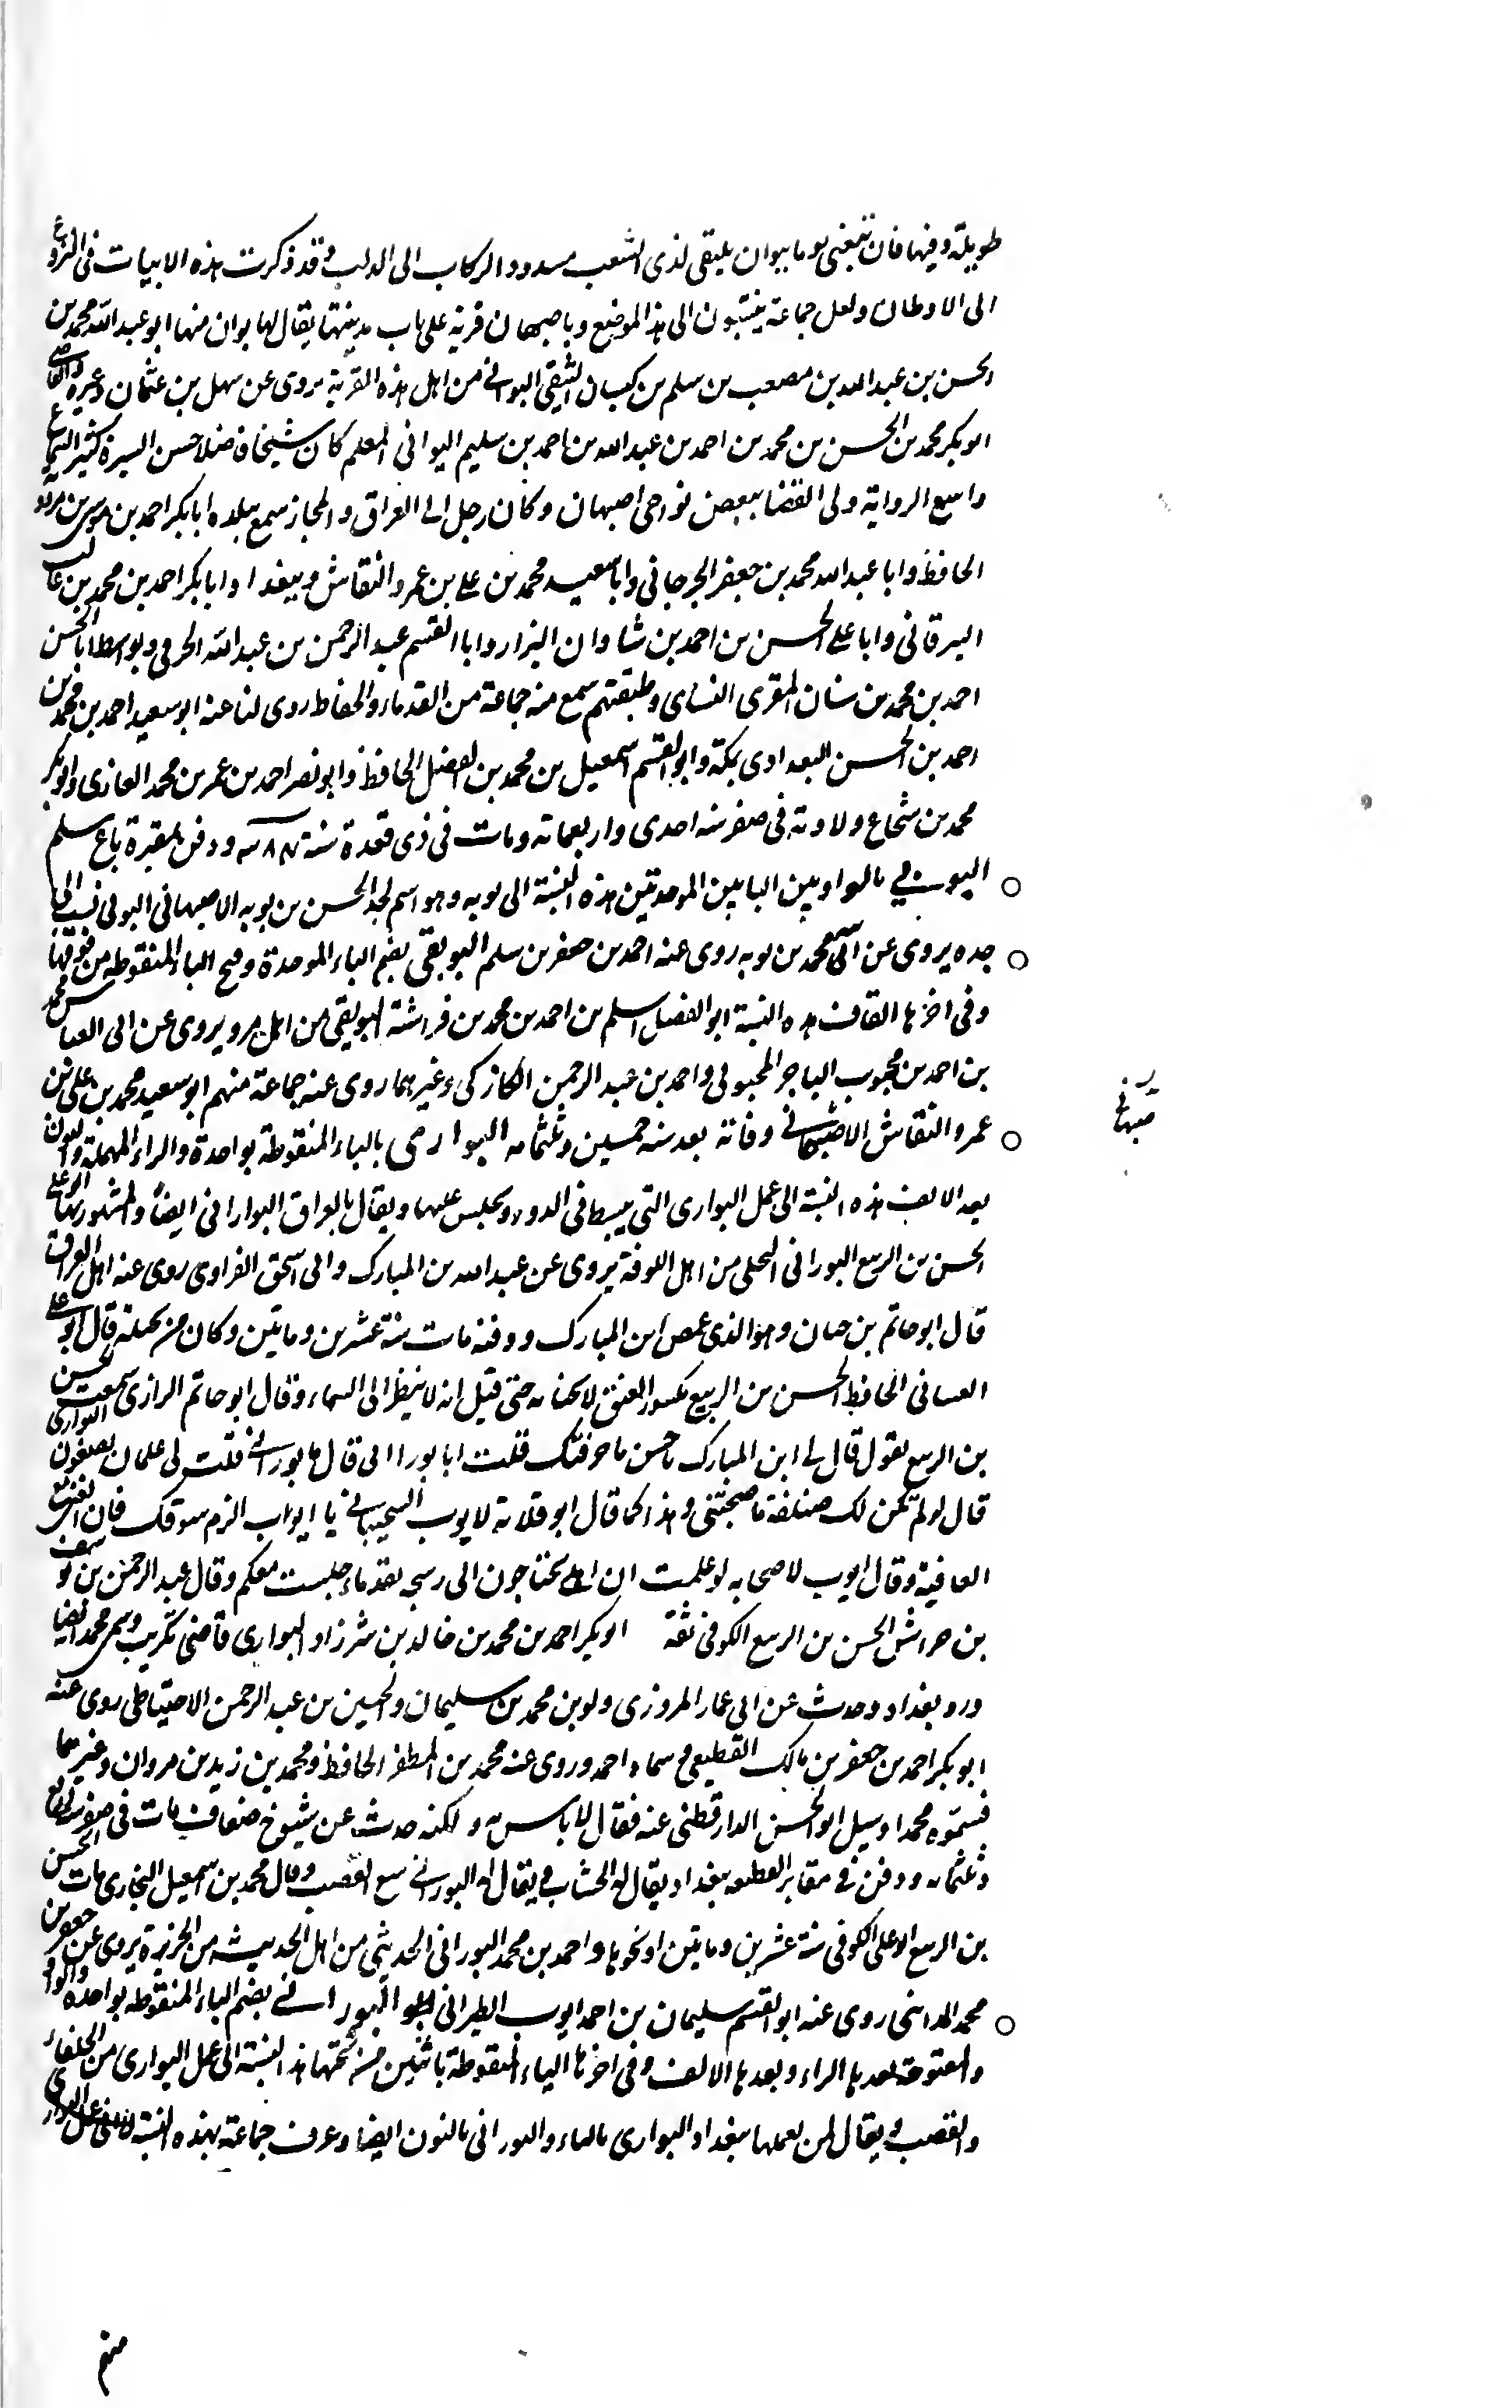 طويلة وفيها فان تبغنى يوما ببوان يلتقى لذى الشعب مسدود الركاب الى الدلب وقد ذكرت هذه الابيات فى النزوع
الى الاوطان ولعل جماعة ينتسبون الى هذا الموضع وباصبهان قرية على باب مدينتها يقال لها بوان منها ابو عبد الله محمد بن
الحسن بن عبد الله بن مصعب بن سلم بن كيسان الثقفى البوانى من اهل هذه القرية يروى عن سهل بن عثمان وغيره والقاضى
ابو بكر محمد بن الحسن بن محمد بن احمد بن عبد الله بن احمد بن سليم البوانى المعلم كان شيخا فاضلا حسن السيرة كثير السماع
واسع الرواية ولى القضا ببعض نواحى اصبهان وكان رحل الى العراق والحجاز سمع ببلده ابا بكر احمد بن موسى بن مردويه
الحافظ وابا عبد الله محمد بن جعفر الجرجانى وابا سعيد محمد بن على بن عمرو النقاش وببغداد ابا بكر احمد بن محمد بن غالب
البرقانى وابا على الحسن بن احمد بن شادان البزار وابا القسم عبد الرحمن بن عبد الله الحرفى وبواسط ابا الحسن
احمد بن محمد بن سنان المقرى النساى وطبقتهم سمع منه جماعة من القدماء والحفاظ روى لنا عنه ابو سعيد احمد بن محمد بن
احمد بن الحسن البغدادى بمكة وابو القسم اسمعيل بن محمد بن الفضل الحافظ وابو نصر احمد بن عمر بن محمد الغازى وابو بكر
محمد بن شجاع ولادته فى صفر سنه احدى واربعمائه ومات فى ذى قعدة سنة ٤٨٤ ودفن بمقبرة باغ سلم
البوبى بالواو بين البابين الموحدتين هذه النسبة الى بوبه وهو اسم لجد الحسن بن بوبه الاصبهانى البوبى نسب الى
جده يروى عن ابيه محمد بن بوبه روى عنه احمد بن جعفر بن سلم البوتقى بضم الباء الموحدة وفتح التاء المنقوطة من فوقها
وفى اخرها القاف هذه النسبة ابو الفضل اسلم بن احمد بن محمد بن فراشة البوتقى من اهل مرو يروى عن ابى العباس محمد
بن احمد بن محبوب التاجر المحبوبى واحمد بن عبد الرحمن الكاركى وغيرهما روى عنه جماعة منهم ابو سعيد محمد بن على بن
عمرو النقاش الاصبهانى وفاته بعد سنه خمسين وثلثمائه البوارى بالباء المنقوطة بواحدة والراء المهملة والنون
بعد الالف هذه النسبة الى عمل البوارى التى يبسط فى الدور ويجلس عليها ويقال بالعراق البوارانى ايضا والمشهور بها ابو على
الحسن بن الربيع البورانى البجلى من اهل الكوفة يروى عن عبد الله بن المبارك وابى اسحق الفزارى روى عنه اهل العراق
قال ابو حاتم بن حبان وهو الذى غمض ابن المبارك ودفنه مات سنة عشرين وماتين وكان من قال ابو على
الغسانى الحافظ الحسن بن الربيع مكسور العنق لا حتى قيل انه لا ينظر الى السماء وقال ابو حاتم الرازى سمعت الحسن
بن الربيع يقول قال لى ابن المبارك يا حسن ما حرفتك قلت انا بورانى قال ما بورانى قلت لى غلمان يصنعون البوارى
قال لو لم تكن لك صناعة ما صحبتنى وهذا كما قال ابو قلابة لايوب السختيانى يا ايوب الزم سوقك فان الغنى مع
العافية وقال ايوب لاصحابه لو علمت ان اهلى يحتاجون الى دستجه بقل ما جلست معكم وقال عبد الرحمن بن يوسف
بن خراش الحسن بن الربيع الكوفى ثقة ابو بكر احمد بن محمد بن خالد بن شرزاد البوارى قاضى تكريت وسمى محمدا ايضا
ورد بغداد وحدث عن ابى عمار المروزى ولوين محمد بن سليمان والحسين بن عبد الرحمن الاحتياطى روى عنه
ابو بكر احمد بن جعفر بن مالك القطيعى وسماه احمد وروى عنه محمد بن المظفر الحافظ ومحمد بن زيد بن مروان وغيرهما
فسموه محمدا وسيل ابو الحسن الدارقطنى عنه فقال لا باس به ولكنه حدث عن شيوخ ضعاف مات فى صفر سنة اربع
وثلثمائه ودفن فى مقابر القطيعه ببغداد يقال له الخشاب ويقال له البورانى بيع القصب وقال محمد بن اسمعيل البخارى مات الحسن
بن الربيع ابو على الكوفى سنة عشرين وماتين او نحوها واحمد بن محمد البورانى الحديثى من اهل الحديثة من الجزيرة يروى عن جعفر بن
محمد المداينى روى عنه ابو القسم سليمان بن احمد ايوب الطبرانى البورانى بضم الباء المنقوطه بواحده والواو
والمفتوحة بعدها الراء وبعدها الالف وفى اخرها الياء المنقوطة باثنين من تحتها هذه النسبة الى عمل البوارى من الحلفاء
والقصب ويقال لمن يعملها ببغداد البوارى بالياء والبورانى بالنون ايضا وعرف جماعة بهذه النسبة عمل البوارى
صبهانى
منهم